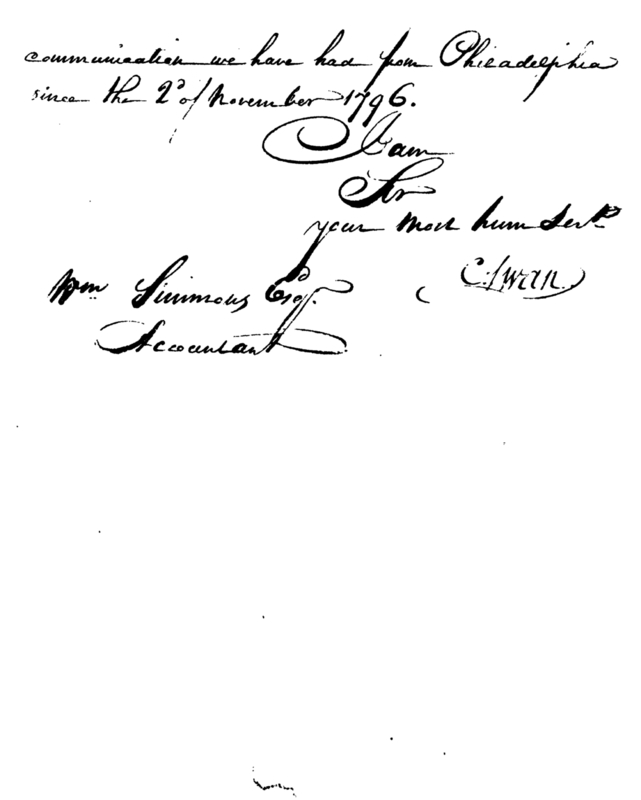 communication we have had from Philadelphia
since the 2d of November 1796.
I am
Sir
your most hum Servt
C. Swan.
Wm Simmons Esqr.
Accountant